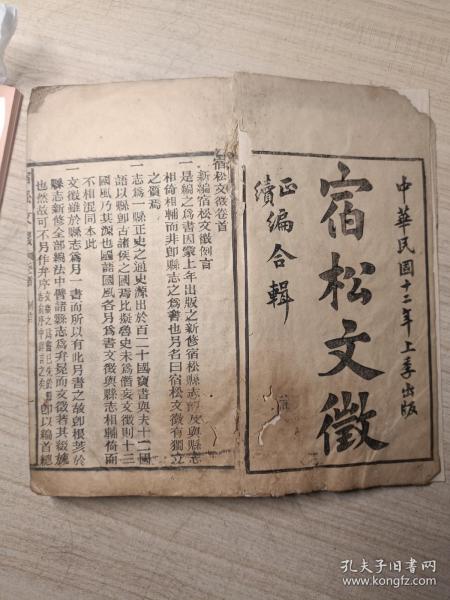 中華民國十二年上季出版
宿松文徵
正續編合輯
宿松文徵卷首
新編宿松文徵例言
一是編之為書因蒙上年出版之新修宿松縣志而及與縣志
相倚相輔而非即縣志之為書也另名曰宿松文徵有獨立
之質焉
一志為一縣正史之通史源出於百二十國寶書與夫十二國
語以縣即古諸侯之國焉比擬魯史未為僭妄文徵則十三
國風乃其源也國語國風各另為書文徵與縣志相輔倚而
不相混同本此
一文徵雖於縣志為另一書而所以有此另書之故即根荄於
縣志新修全部編法中譬諸縣志為弁冕而文徵著其綴旒
也然故可不另作弁序
即以編首總
孔夫子旧书网
www.kongfz.com